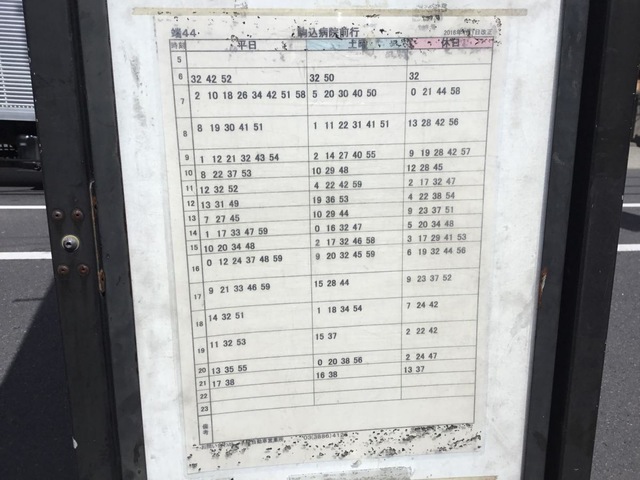 端44 駒込病院前行
時刻 平日 土曜 休日
5
6 32 42 52 32 50 32
7 2 10 18 26 34 42 51 58 5 20 30 40 50 0 21 44 58
8 8 19 30 41 51 1 11 22 31 41 51 13 28 42 56
9 1 12 21 32 43 54 2 14 27 40 55 9 19 28 42 57
10 8 22 37 53 10 29 48 12 28 45
11 12 32 52 4 22 42 59 2 17 32 47
12 13 31 49 19 36 53 4 22 38 54
13 7 27 45 10 29 44 9 23 37 51
14 1 17 33 47 59 0 16 32 47 5 20 34 48
15 10 20 34 48 2 17 32 46 58 3 17 29 41 53
16 0 12 24 37 48 59 9 20 32 45 59 6 19 32 44 56
17 9 21 33 46 59 15 28 44 9 23 37 52
18 14 32 51 1 18 34 54 7 24 42
19 11 32 53 15 37 2 22 42
20 13 35 55 0 20 38 56 2 24 47
21 17 38 16 38 13 37
22
23
備考